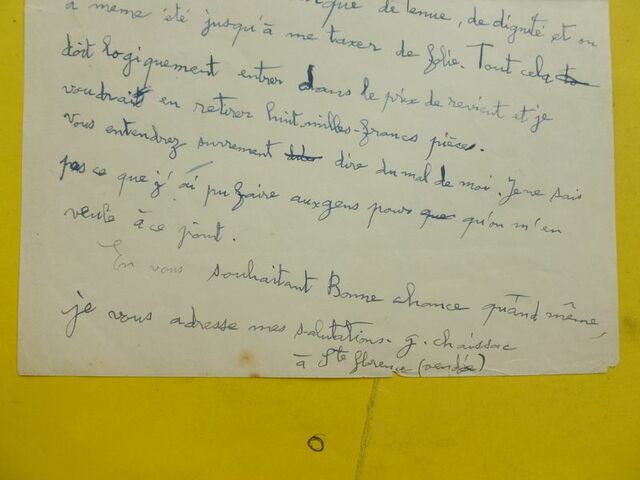 de tenue, de dignité et on
a même été jusqu'à me taxer de folie. Tout cela
doit logiquement entrer dans le prix de revient et je
voudrait en retirer huit milles-francs pièces.
vous entendrez surrement dire du mal de moi. Je ne sais
pas ce que j'ai pu faire aux gens pour qu'on m'en
veule à ce point.
En vous souhaitant Bonne chance quand même,
je vous adresse mes salutations. g. chaissac
à Ste florence (vendée)